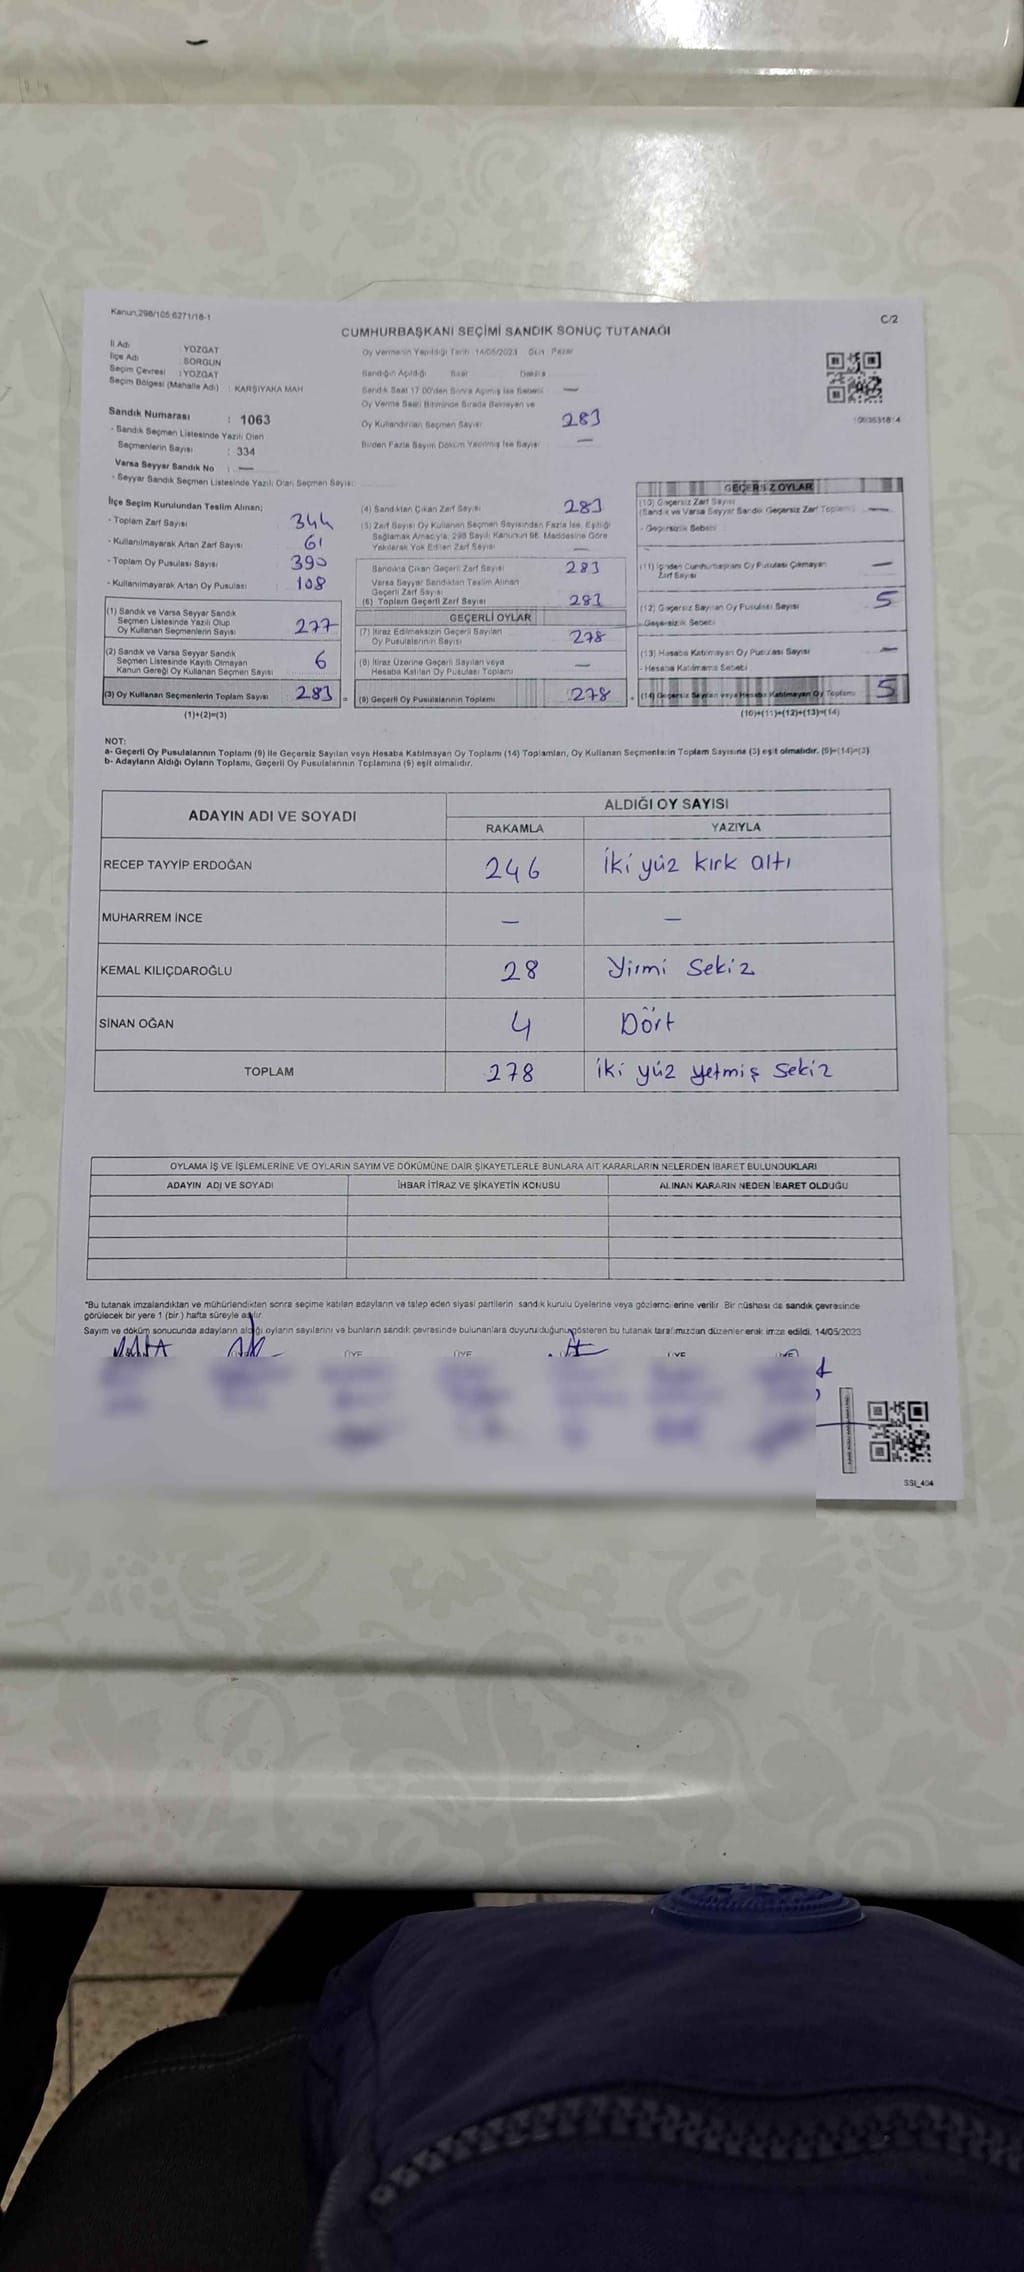 Kanun,298/105,6271/18-1
C/2
CUMHURBAŞKANI SEÇİMİ SANDIK SONUÇ TUTANAĞI
İl Adı : YOZGAT
İlçe Adı : SORGUN
Seçim Çevresi : YOZGAT
Seçim Bölgesi (Mahalle Adı) : KARŞIYAKA MAH
Sandık Numarası : 1063
- Sandık Seçmen Listesinde Yazılı Olan
Seçmenlerin Sayısı : 334
Varsa Seyyar Sandık No : —
- Seyyar Sandık Seçmen Listesinde Yazılı Olan Seçmen Sayısı:
Oy Vermenin Yapıldığı Tarih : 14/05/2023 Gün : Pazar
Sandığın Açıldığı Saat Dakika
Sandık Saat 17.00'den Sonra Açılmış İse Sebebi —
Oy Verme Saati Bitiminde Sırada Bekleyen ve
Oy Kullandırılan Seçmen Sayısı 283
Birden Fazla Sayım Döküm Yapılmış İse Sayısı —
İlçe Seçim Kurulundan Teslim Alınan;
- Toplam Zarf Sayısı 344
- Kullanılmayarak Artan Zarf Sayısı 61
- Toplam Oy Pusulası Sayısı 390
- Kullanılmayarak Artan Oy Pusulası 108
(1) Sandık ve Varsa Seyyar Sandık
Seçmen Listesinde Yazılı Olup
Oy Kullanan Seçmenlerin Sayısı 277
(2) Sandık ve Varsa Seyyar Sandık
Seçmen Listesinde Kayıtlı Olmayan
Kanun Gereği Oy Kullanan Seçmen Sayısı 6
(3) Oy Kullanan Seçmenlerin Toplam Sayısı 283 =
(1)+(2)=(3)
(4) Sandıktan Çıkan Zarf Sayısı 283
(5) Zarf Sayısı Oy Kullanan Seçmen Sayısından Fazla İse, Eşitliği
Sağlamak Amacıyla, 298 Sayılı Kanunun 98. Maddesine Göre
Yakılarak Yok Edilen Zarf Sayısı —
Sandıkta Çıkan Geçerli Zarf Sayısı 283
Varsa Seyyar Sandıktan Teslim Alınan
Geçerli Zarf Sayısı
(6) Toplam Geçerli Zarf Sayısı 283
GEÇERLİ OYLAR
(7) İtiraz Edilmeksizin Geçerli Sayılan
Oy Pusulalarının Sayısı 278
(8) İtiraz Üzerine Geçerli Sayılan veya
Hesaba Katılan Oy Pusulası Toplamı —
(9) Geçerli Oy Pusulalarının Toplamı 278 +
GEÇERSİZ OYLAR
(10) Geçersiz Zarf Sayısı
(Sandık ve Varsa Seyyar Sandık Geçersiz Zarf Toplamı) —
- Geçersizlik Sebebi :
(11) İçinden Cumhurbaşkanı Oy Pusulası Çıkmayan
Zarf Sayısı —
(12) Geçersiz Sayılan Oy Pusulası Sayısı 5
- Geçersizlik Sebebi
(13) Hesaba Katılmayan Oy Pusulası Sayısı —
- Hesaba Katılmama Sebebi
(14) Geçersiz Sayılan veya Hesaba Katılmayan Oy Toplamı 5
(10)+(11)+(12)+(13)=(14)
NOT:
a- Geçerli Oy Pusulalarının Toplamı (9) ile Geçersiz Sayılan veya Hesaba Katılmayan Oy Toplamı (14) Toplamları, Oy Kullanan Seçmenlerin Toplam Sayısına (3) eşit olmalıdır. (9)+(14)=(3)
b- Adayların Aldığı Oyların Toplamı, Geçerli Oy Pusulalarının Toplamına (9) eşit olmalıdır.
ADAYIN ADI VE SOYADI ALDIĞI OY SAYISI
RAKAMLA YAZIYLA
RECEP TAYYİP ERDOĞAN 246 İki yüz kırk altı
MUHARREM İNCE — —
KEMAL KILIÇDAROĞLU 28 Yirmi Sekiz
SİNAN OĞAN 4 Dört
TOPLAM 278 iki yüz yetmiş Sekiz
OYLAMA İŞ VE İŞLEMLERİNE VE OYLARIN SAYIM VE DÖKÜMÜNE DAİR ŞİKAYETLERLE BUNLARA AİT KARARLARIN NELERDEN İBARET BULUNDUKLARI
ADAYIN ADI VE SOYADI İHBAR İTİRAZ VE ŞİKAYETİN KONUSU ALINAN KARARIN NEDEN İBARET OLDUĞU
"Bu tutanak imzalandıktan ve mühürlendikten sonra seçime katılan adayların ve talep eden siyasi partilerin sandık kurulu üyelerine veya gözlemcilerine verilir. Bir nüshası da sandık çevresinde
görülecek bir yere 1 (bir) hafta süreyle asılır.
Sayım ve döküm sonucunda adayların aldığı oyların sayılarını ve bunların sandık çevresinde bulunanlara duyurulduğunu gösteren bu tutanak tarafımızdan düzenlenerek imza edildi. 14/05/2023
ÜYE ÜYE ÜYE
SSI_404